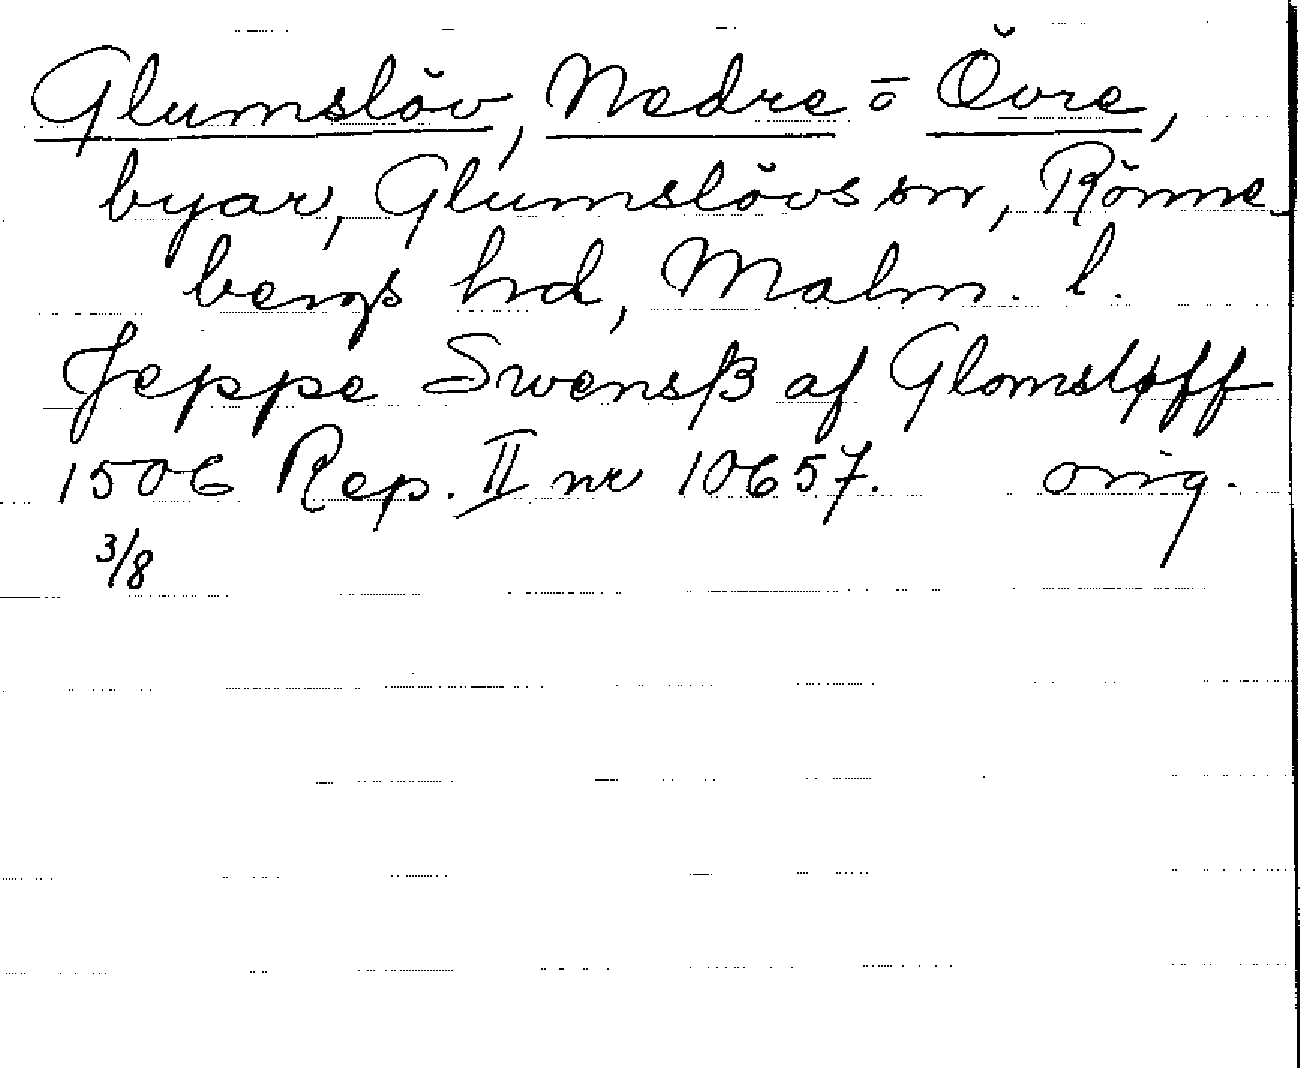 Glumslöv, Nedre o Övre,
byar, Glumslövs sn, Rönne-
bergs hd, Malm. l.
Jeppe Swensß af Glomsløff
1506 Rep. II nr 10657. orig.
3/8